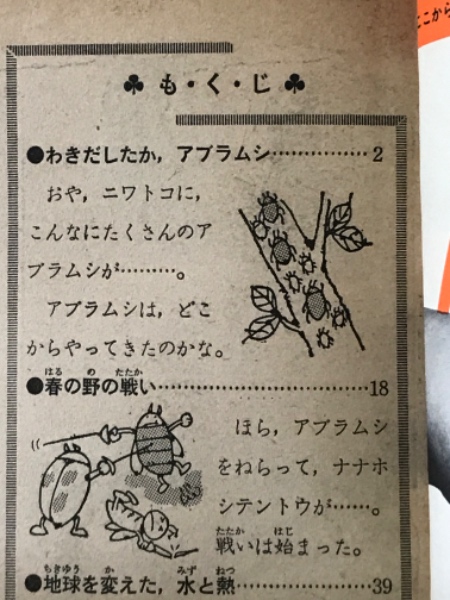 ♣ も・く・じ ♣
●わきだしたか，アブラムシ……………2
おや，ニワトコに，
こんなにたくさんのア
ブラムシが………。
アブラムシは，どこ
からやってきたのかな。
●春の野の戦い………………………18
はる の たたか
ほら，アブラムシ
をねらって，ナナホ
シテントウが……。
戦いは始まった。
たたか はじ
●地球を変えた，水と熱……………39
ちきゆう か みず ねつ
ここから